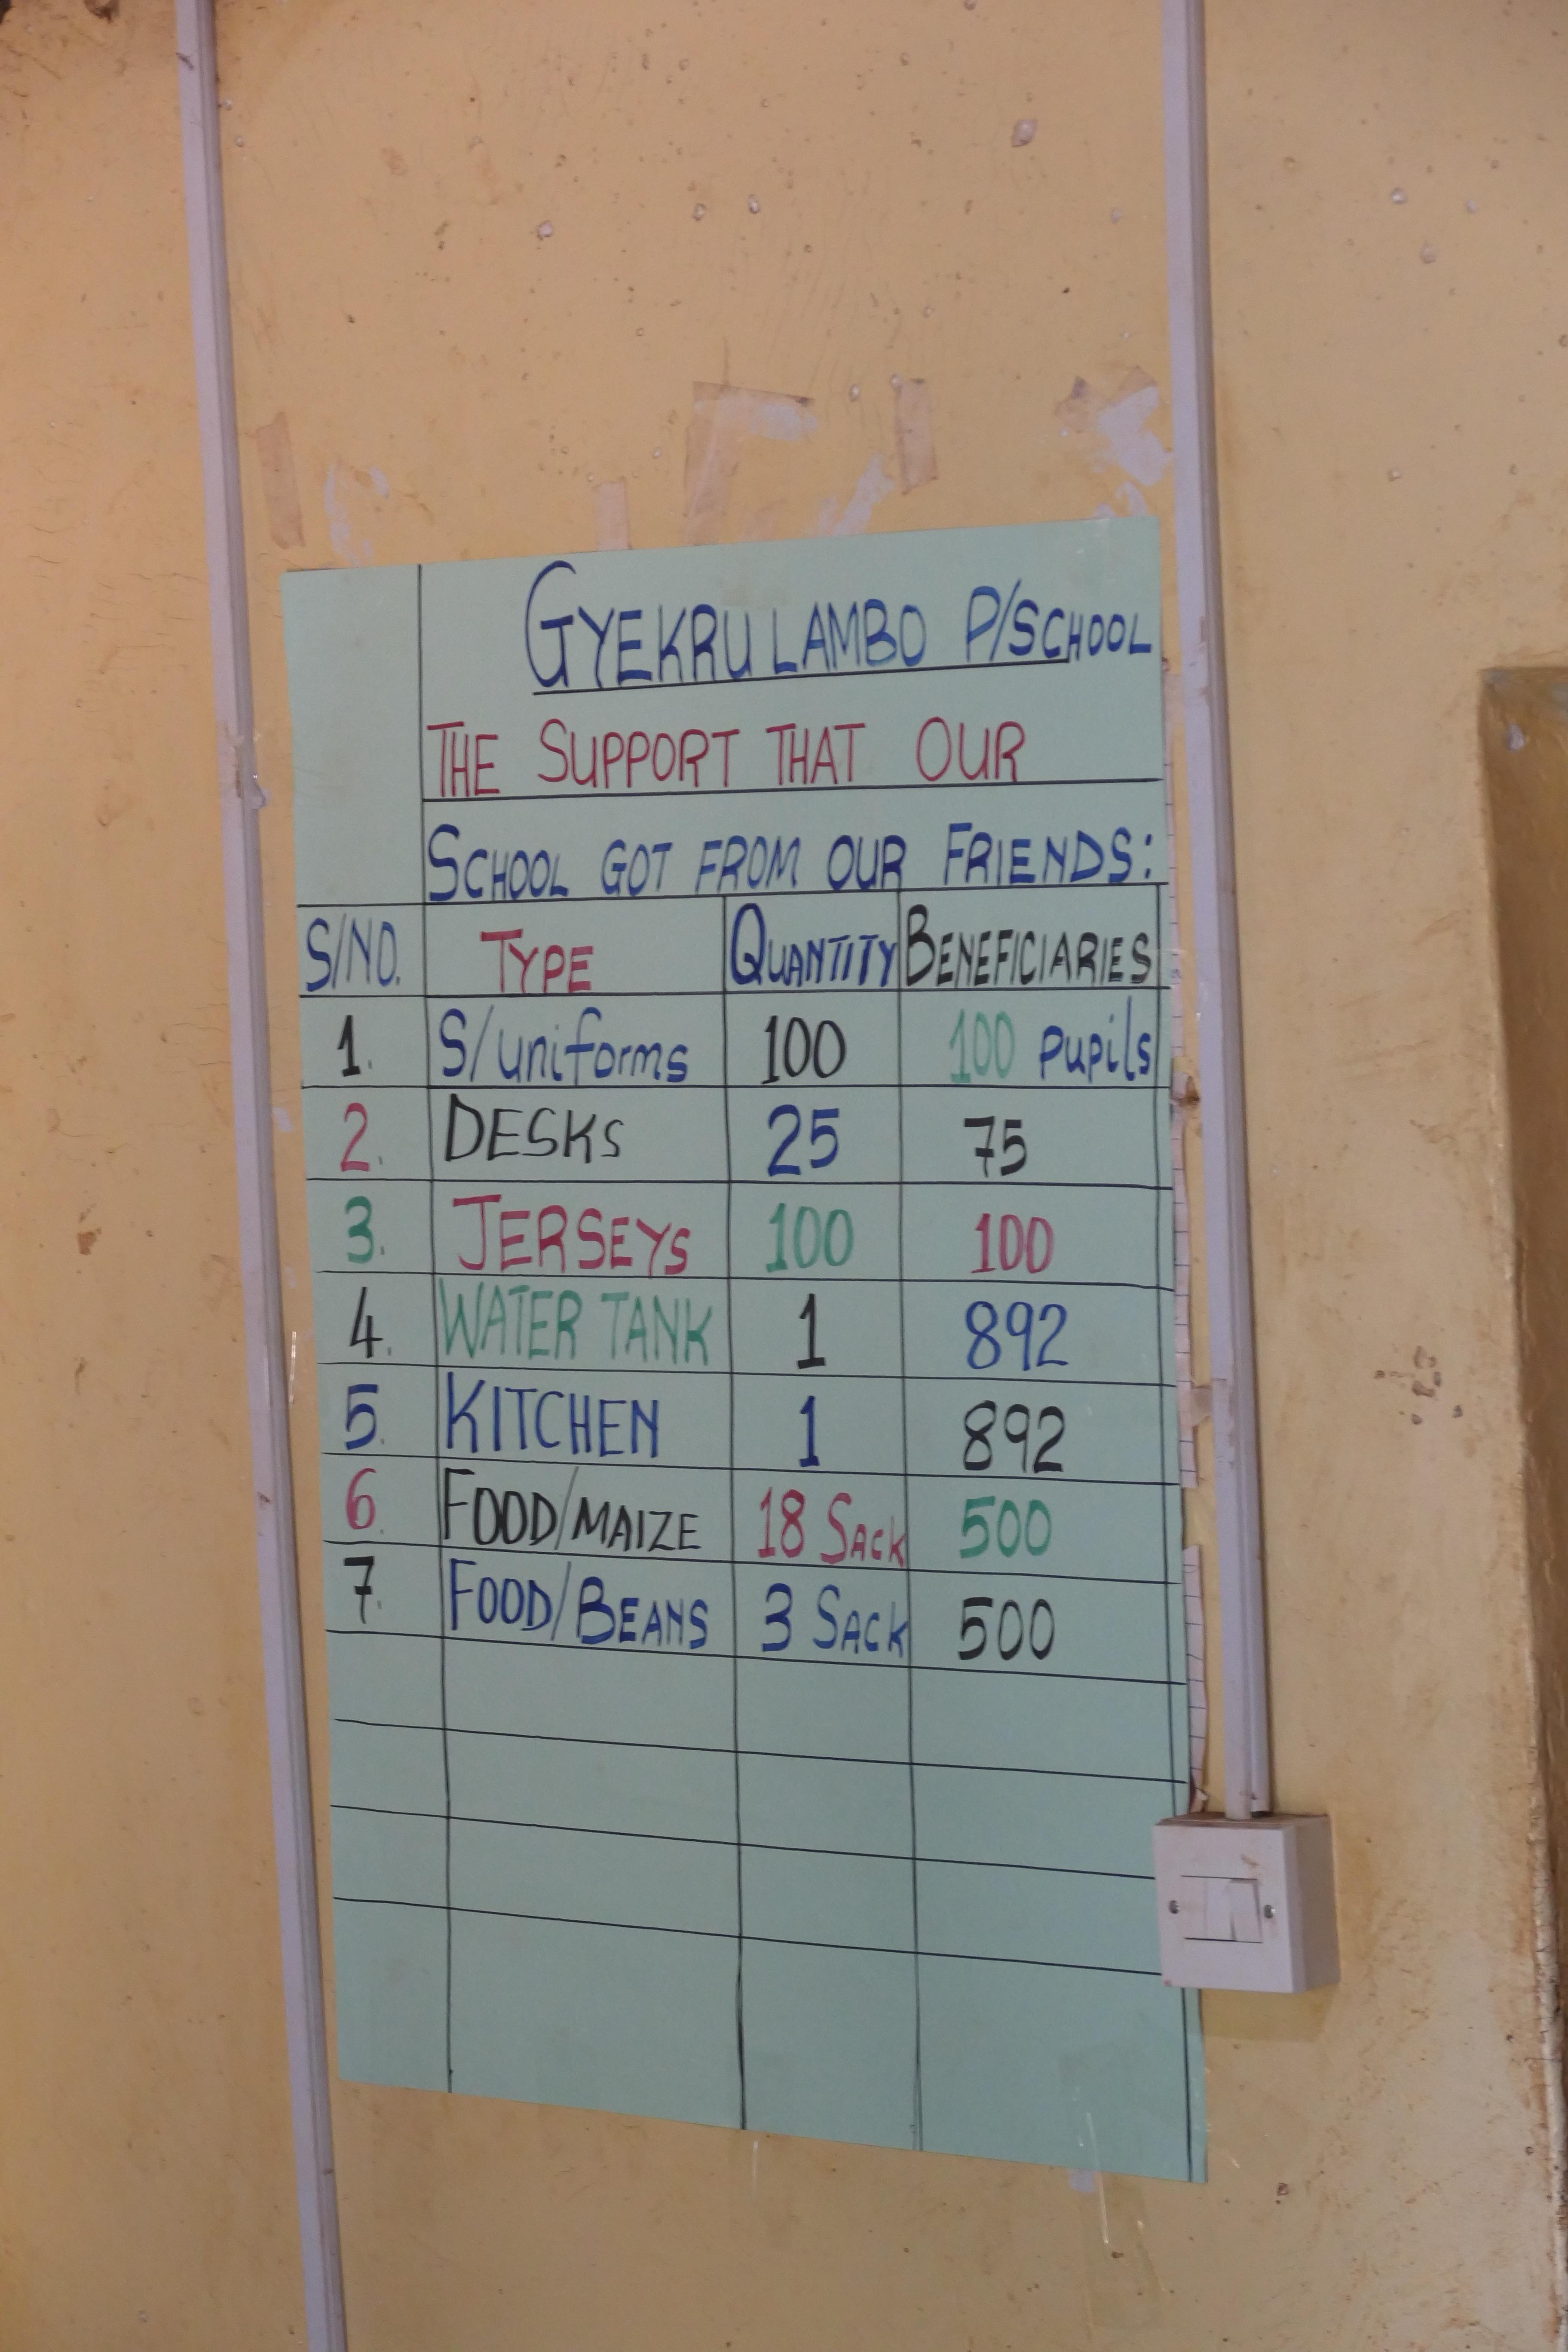 GYEKRU LAMBO P/SCHOOL
THE SUPPORT THAT OUR
SCHOOL GOT FROM OUR FRIENDS:
S/NO. TYPE QUANTITY BENEFICIARIES
1. S/uniforms 100 100 pupils
2. DESKS 25 75
3. JERSEYS 100 100
4. WATER TANK 1 892
5. KITCHEN 1 892
6. FOOD/MAIZE 18 SACK 500
7. FOOD/BEANS 3 SACK 500